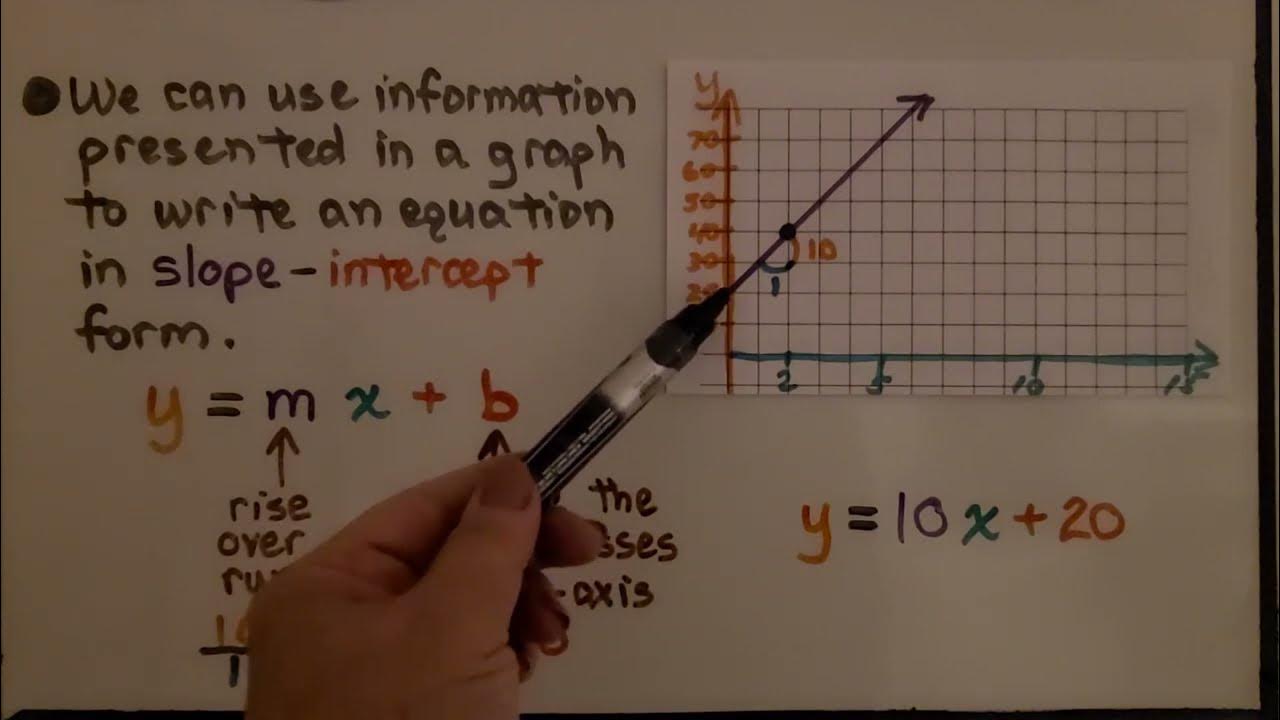 We can use information
presented in a graph
to write an equation
in slope-intercept
form.
y = m x + b
rise
over
the
-axis
1
y
70
60
50
40
30
10
1
2
5
10
15
y = 10x + 20